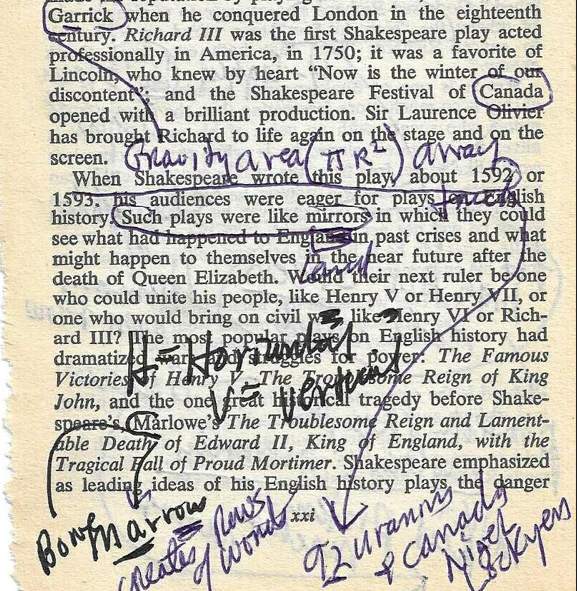 Garrick when he conquered London in the eighteenth
century. Richard III was the first Shakespeare play acted
professionally in America, in 1750; it was a favorite of
Lincoln, who knew by heart “Now is the winter of our
discontent”; and the Shakespeare Festival of Canada
opened with a brilliant production. Sir Laurence Olivier
has brought Richard to life again on the stage and on the
screen.
Gravity area (π R²) array
When Shakespeare wrote this play, about 1592 or
1593, his audiences were eager for plays on English
history. Such plays were like mirrors in which they could
see what had happened to England in past crises and what
might happen to themselves in the near future after the
death of Queen Elizabeth. Would their next ruler be one
who could unite his people, like Henry V or Henry VII, or
one who would bring on civil war like Henry VI or Rich-
ard III? The most popular plays on English history had
dramatized wars and struggles for power: The Famous
Victories of Henry V, The Troublesome Reign of King
John, and the one great historical tragedy before Shake-
speare's, Marlowe's The Troublesome Reign and Lament-
able Death of Edward II, King of England, with the
Tragical Fall of Proud Mortimer. Shakespeare emphasized
as leading ideas of his English history plays the danger
H = Horizontal
V = Vertical
xxi
arrow
creates
of words
92 uranium
& canada
Nigel